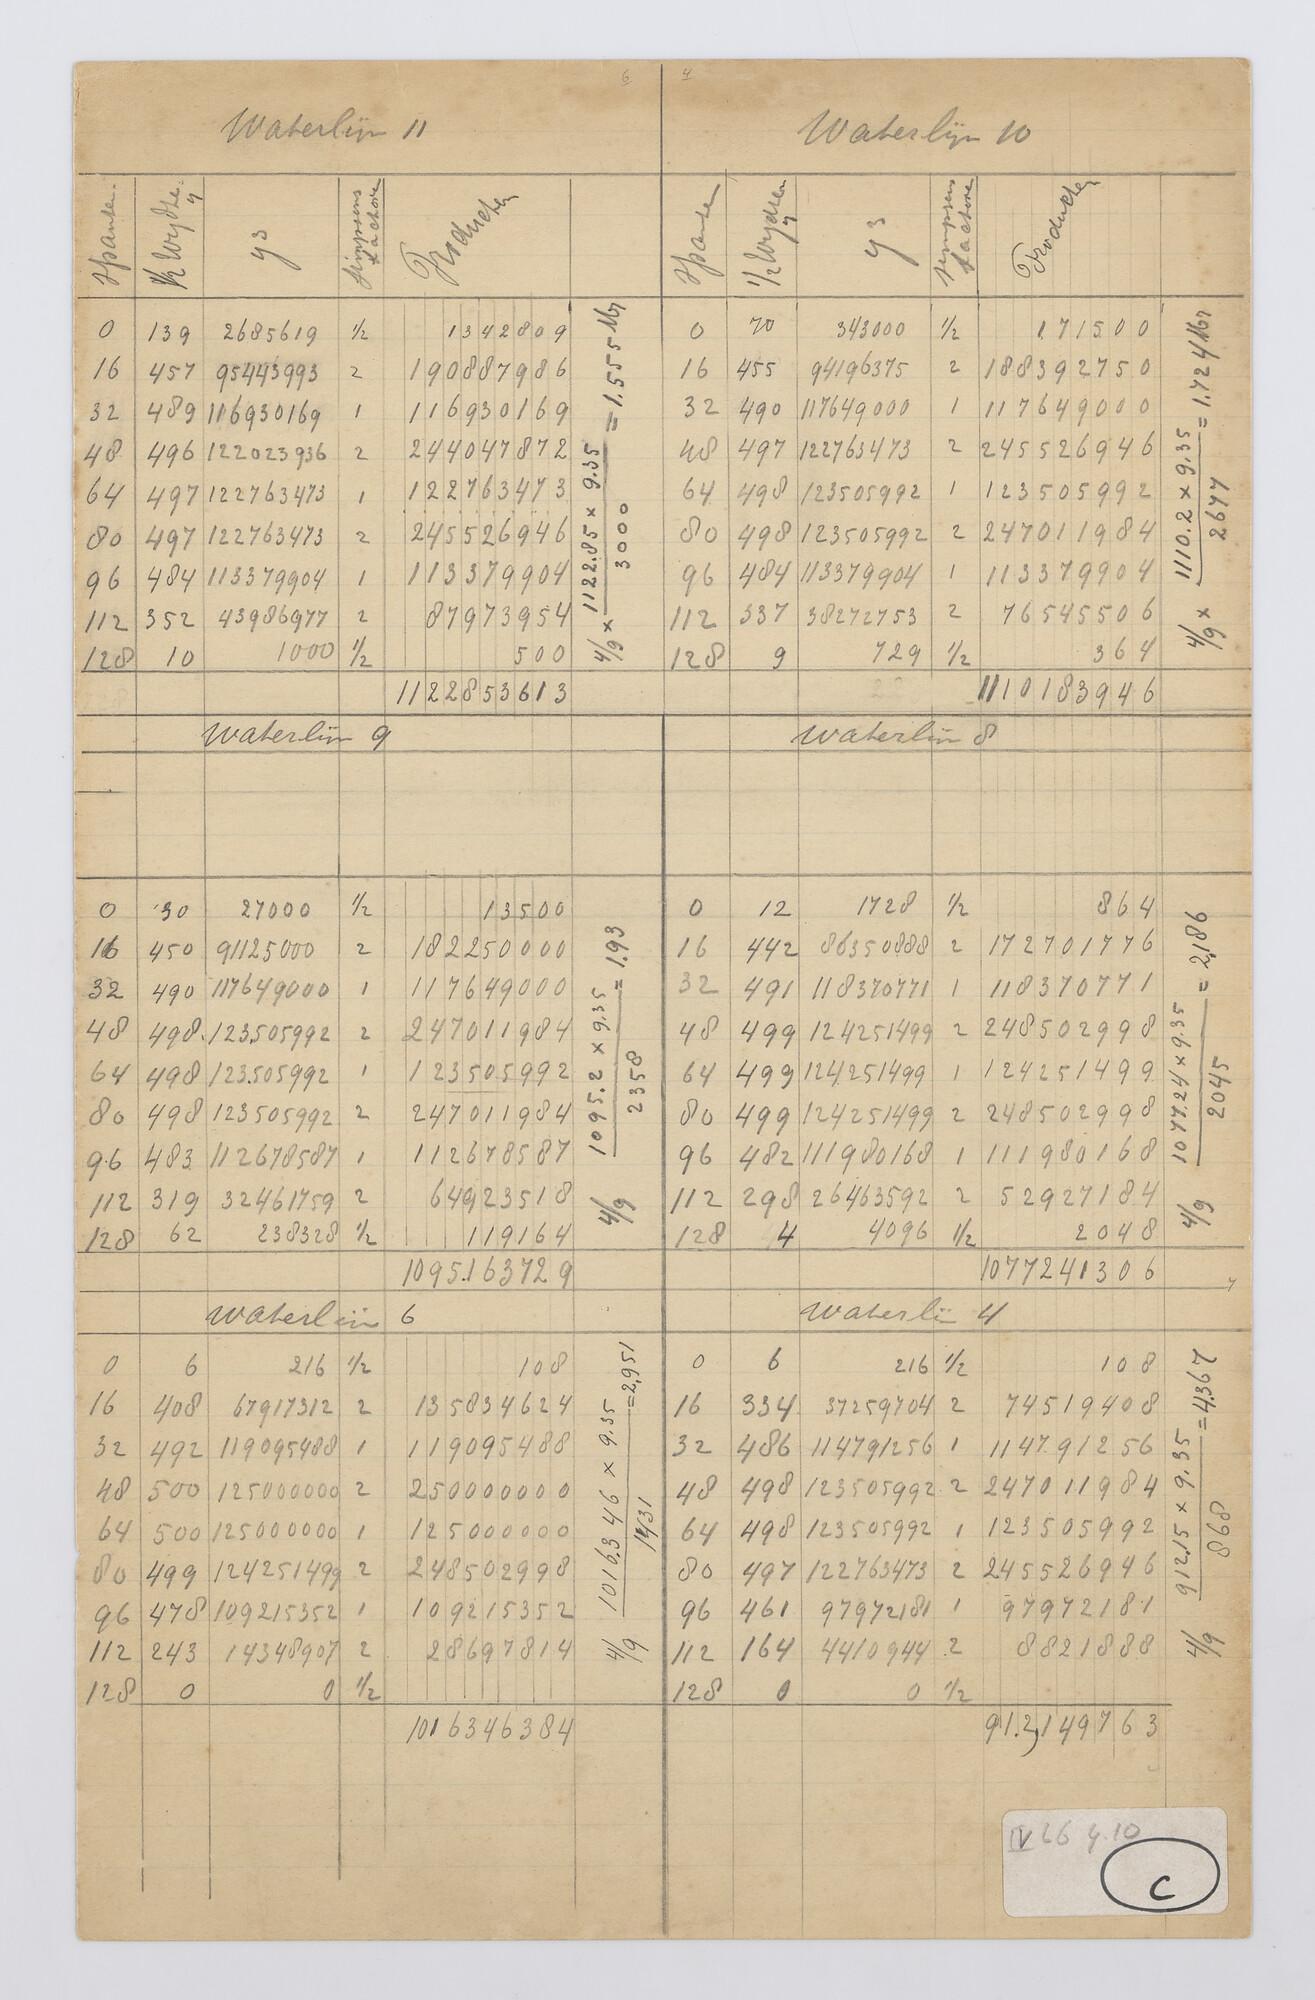 6
Waterlijn 11
Spanten. ½ Wydte. y y³ Simpsons factore Producten
0 139 2685619 ½ 1342809
16 457 95443993 2 190887986
32 489 116930169 1 116930169
48 496 122023936 2 244047872
64 497 122763473 1 122763473
80 497 122763473 2 245526946
96 484 113379904 1 113379904
112 352 43986977 2 87973954
128 10 1000 ½ 500
1122853613
4/9 × 1122.85 × 9.35 / 3000 = 1.555 Mr
4
Waterlijn 10
Spanten ½ Wydten y y³ Simpsons factore Producten
0 70 343000 ½ 171500
16 455 94196375 2 188392750
32 490 117649000 1 117649000
48 497 122763473 2 245526946
64 498 123505992 1 123505992
80 498 123505992 2 247011984
96 484 113379904 1 113379904
112 337 38272753 2 76545506
128 9 729 ½ 364
1110183946
4/9 × 1110.2 × 9.35 / 2677 = 1.724 Mr
Waterlijn 9
0 30 27000 ½ 13500
16 450 91125000 2 182250000
32 490 117649000 1 117649000
48 498. 123505992 2 247011984
64 498 123505992 1 123505992
80 498 123505992 2 247011984
96 483 112678587 1 112678587
112 319 32461759 2 64923518
128 62 238328 ½ 119164
1095.163729
4/9 1095.2 × 9.35 / 2358 = 1.93
Waterlijn 8
0 12 1728 ½ 864
16 442 86350888 2 172701776
32 491 118370771 1 118370771
48 499 124251499 2 248502998
64 499 124251499 1 124251499
80 499 124251499 2 248502998
96 482 111980168 1 111980168
112 298 26463592 2 52927184
128 4 4096 ½ 2048
1077241306
4/9 1077.24 × 9.35 / 2045 = 2,186
Waterlijn 6
0 6 216 ½ 108
16 408 67917312 2 135834624
32 492 119095488 1 119095488
48 500 125000000 2 250000000
64 500 125000000 1 125000000
80 499 124251499 2 248502998
96 478 109215352 1 109215352
112 243 14348907 2 28697814
128 0 0 ½
1016346384
4/9 1016.346 × 9.35 / 1431 = 2,951
Waterlijn 4
0 6 216 ½ 108
16 334 37259704 2 74519408
32 486 114791256 1 114791256
48 498 123505992 2 247011984
64 498 123505992 1 123505992
80 497 122763473 2 245526946
96 461 97972181 1 97972181
112 164 4410944 2 8821888
128 0 0 ½
912,149763
4/9 912.15 × 9.35 / 868 = 4.367
IV 66 4.10
C